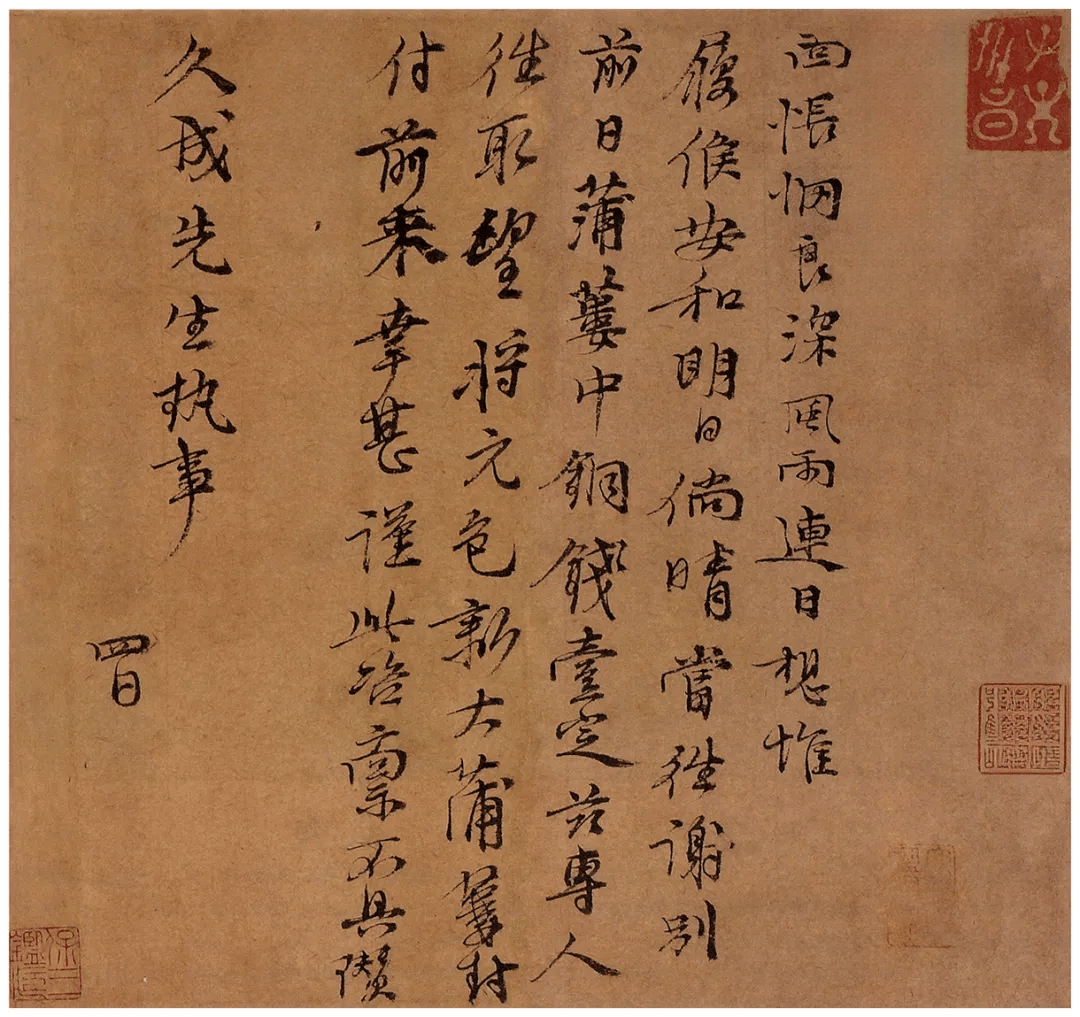 面悵悃良深風雨連日想惟
履候安和明日倘晴當往謝別
前日蒲蔞中銅錢壹定茲專人
往取望將元包新大蒲蔞封
付前來幸甚謹此咨禀不具儧
久成先生執事
四日